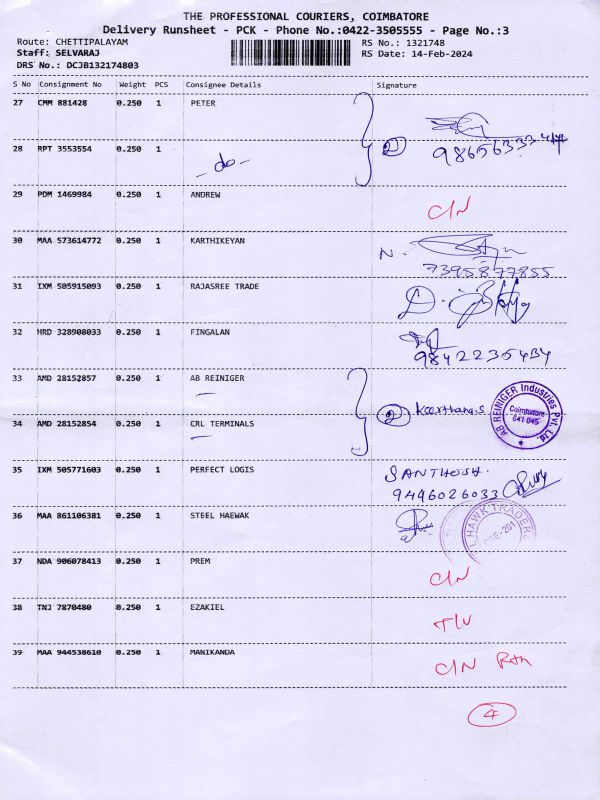 THE PROFESSIONAL COURIERS, COIMBATORE
Delivery Runsheet - PCK - Phone No.:0422-3505555 - Page No.:3
Route: CHETTIPALAYAM RS No.: 1321748
Staff: SELVARAJ RS Date: 14-Feb-2024
DRS No.: DCJB132174803
S No Consignment No Weight PCS Consignee Details Signature
27 CMM 881428 0.250 1 PETER
28 RPT 3553554 0.250 1 -do- 2
29 PDM 1469984 0.250 1 ANDREW C/N
30 MAA 573614772 0.250 1 KARTHIKEYAN N.
7395877855
31 IXM 505915093 0.250 1 RAJASREE TRADE D.
32 HRD 328908033 0.250 1 FINGALAN
9842235434
33 AMD 28152857 0.250 1 AB REINIGER
2 Keerthana.S AB REINIGER Industries Pvt. Ltd. Coimbatore 641 045
34 AMD 28152854 0.250 1 CRL TERMINALS
35 IXM 505771603 0.250 1 PERFECT LOGIS SANTHOSH.
9496026033
36 MAA 861106381 0.250 1 STEEL HAEWAK HAWK TRADERS
37 NDA 906078413 0.250 1 PREM C/N
38 TNJ 7870480 0.250 1 EZAKIEL
39 MAA 944538610 0.250 1 MANIKANDA C/N
4